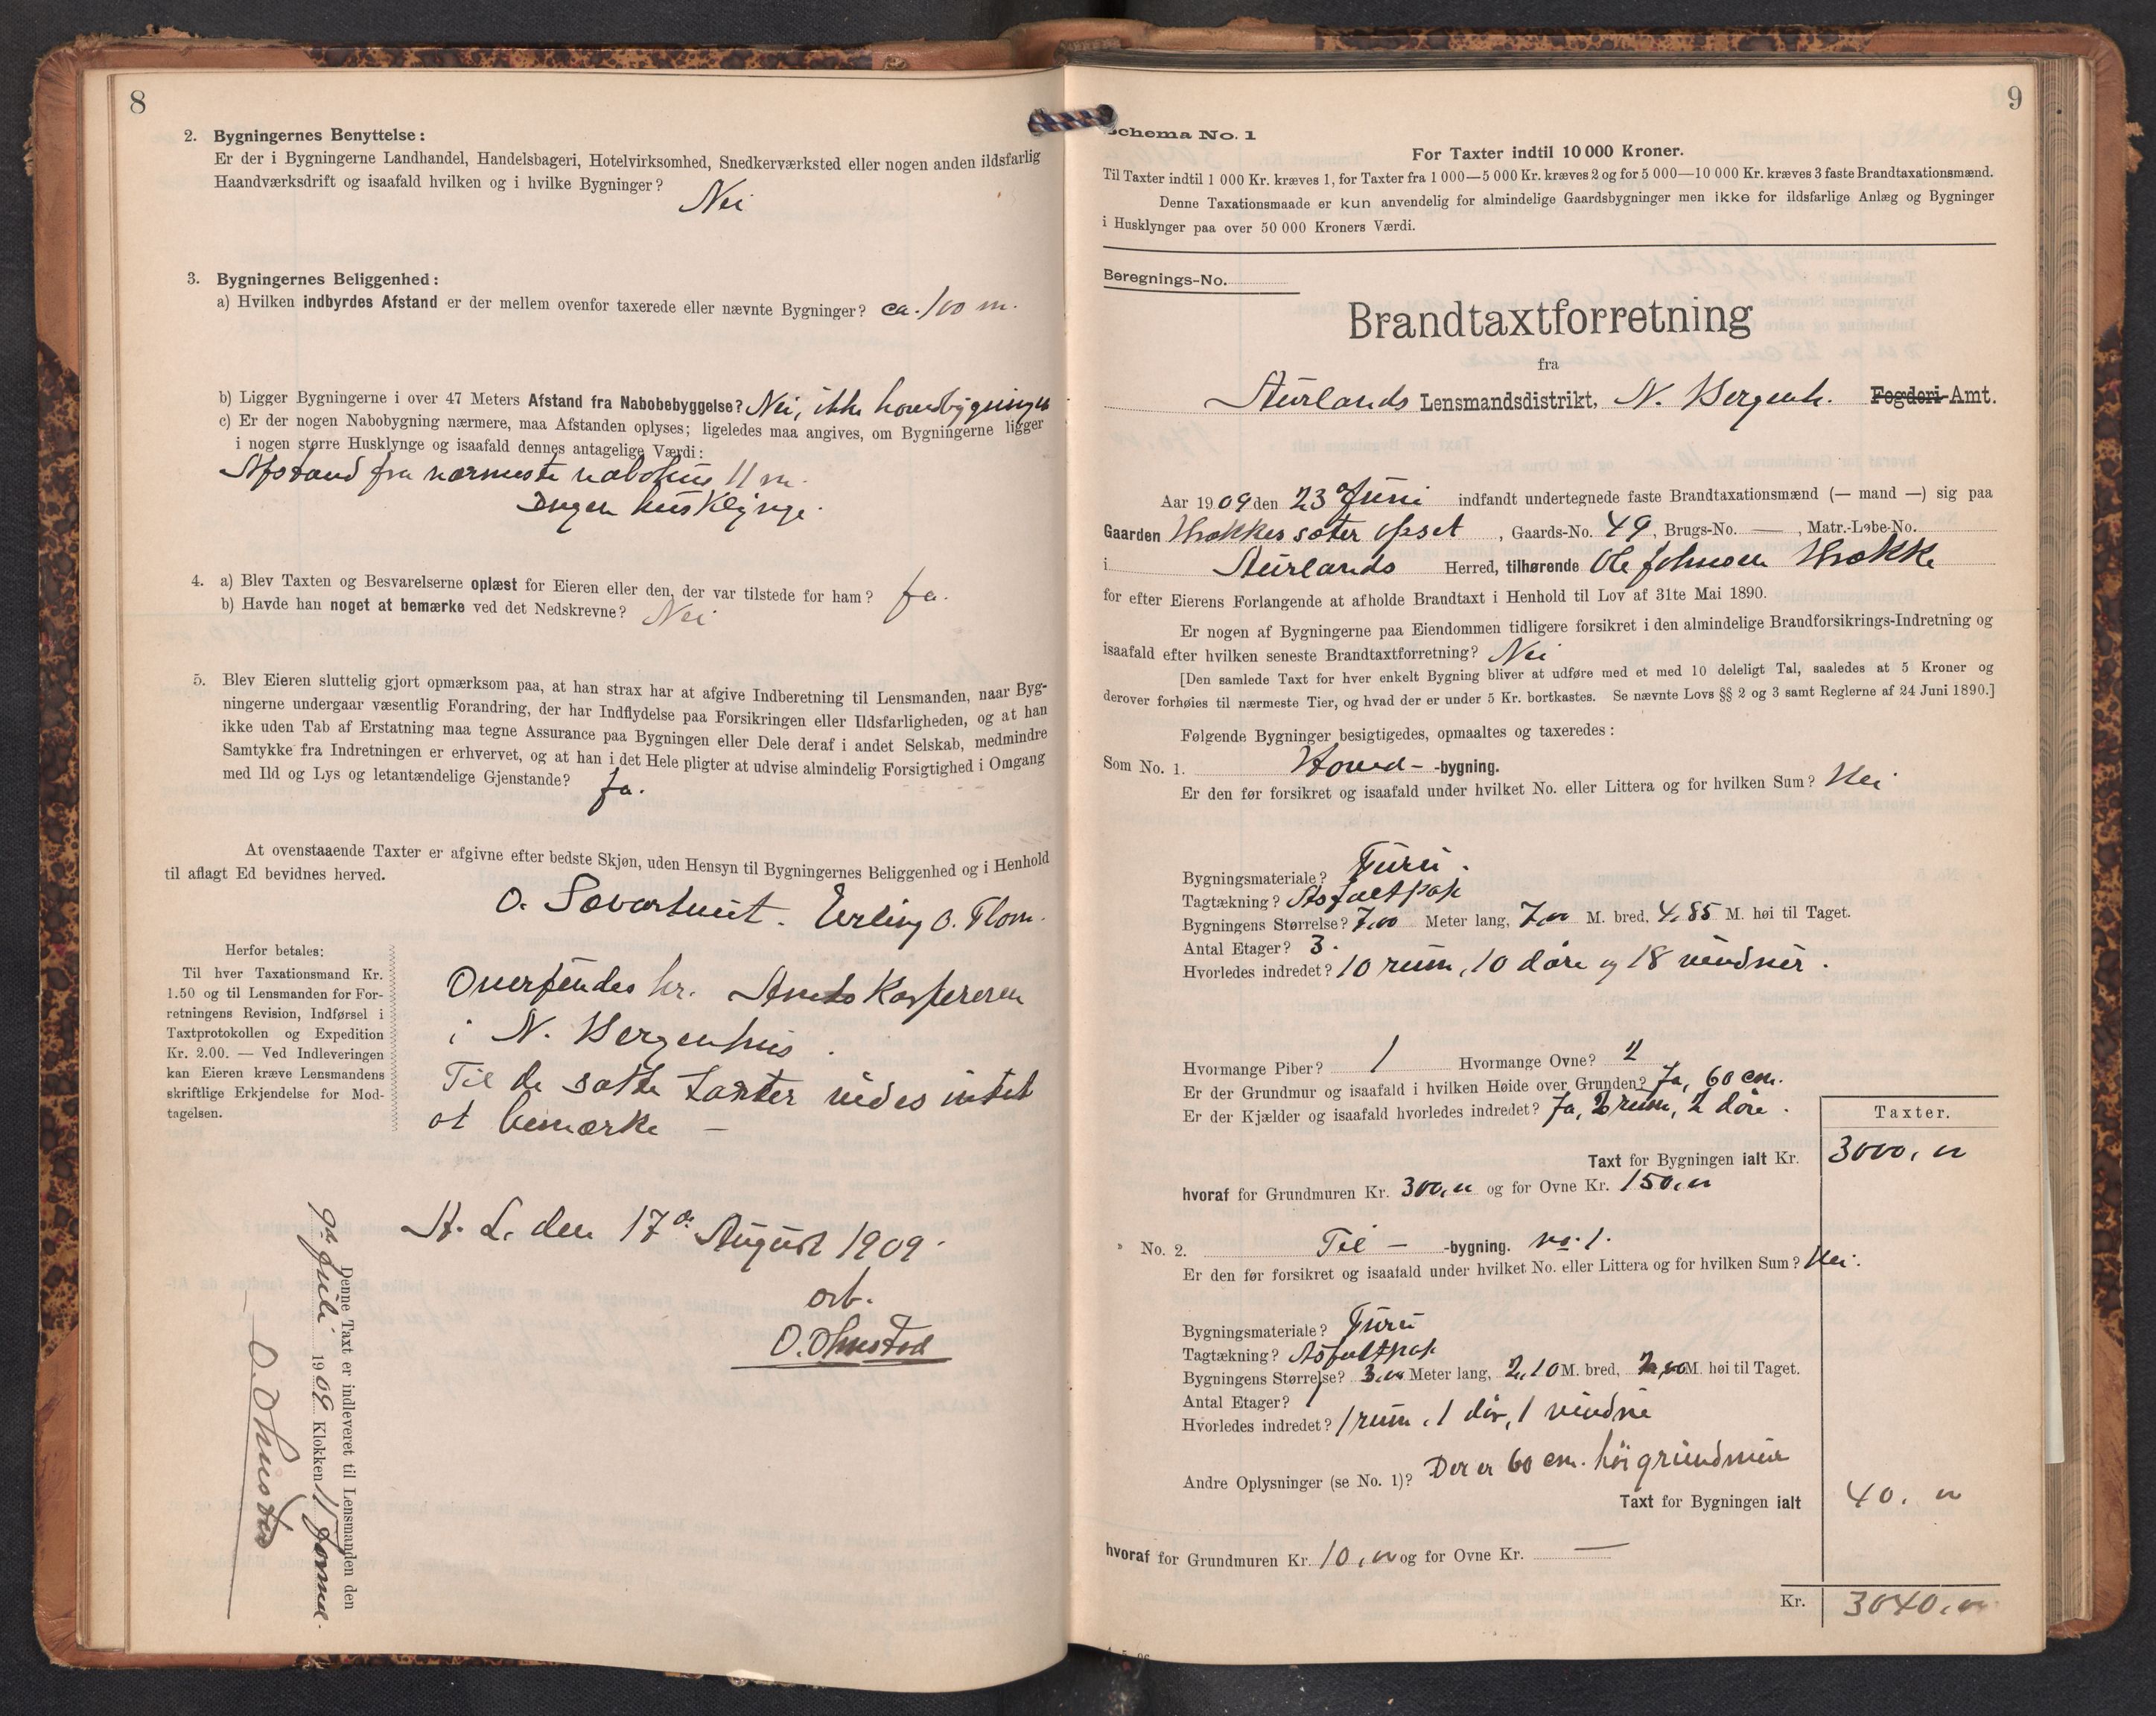 8
2. Bygningernes Benyttelse:
Er der i Bygningerne Landhandel, Handelsbageri, Hotelvirksomhed, Snedkerværksted eller nogen anden ildsfarlig
Haandværksdrift og isaafald hvilken og i hvilke Bygninger? Nei
3. Bygningernes Beliggenhed:
a) Hvilken indbyrdes Afstand er der mellem ovenfor taxerede eller nævnte Bygninger? ca. 100 m.
b) Ligger Bygningerne i over 47 Meters Afstand fra Nabobebyggelse? Nei, ikke hovedbygningen
c) Er der nogen Nabobygning nærmere, maa Afstanden oplyses; ligeledes maa angives, om Bygningerne ligger
i nogen større Husklynge og isaafald dennes antagelige Værdi:
Afstand fra nærmeste nabohus 11 m.
Ingen husklynge.
4. a) Blev Taxten og Besvarelserne oplæst for Eieren eller den, der var tilstede for ham? Ja.
b) Havde han noget at bemærke ved det Nedskrevne? Nei
5. Blev Eieren sluttelig gjort opmærksom paa, at han strax har at afgive Indberetning til Lensmanden, naar Byg-
ningerne undergaar væsentlig Forandring, der har Indflydelse paa Forsikringen eller Ildsfarligheden, og at han
ikke uden Tab af Erstatning maa tegne Assurance paa Bygningen eller Dele deraf i andet Selskab, medmindre
Samtykke fra Indretningen er erhvervet, og at han i det Hele pligter at udvise almindelig Forsigtighed i Omgang
med Ild og Lys og letantændelige Gjenstande? Ja.
At ovenstaaende Taxter er afgivne efter bedste Skjøn, uden Hensyn til Bygningernes Beliggenhed og i Henhold
til aflagt Ed bevidnes herved.
O. Erling O. Flom.
Herfor betales:
Til hver Taxationsmand Kr.
1.50 og til Lensmanden for For-
retningens Revision, Indførsel i
Taxtprotokollen og Expedition
Kr. 2.00. — Ved Indleveringen
kan Eieren kræve Lensmandens
skriftlige Erkjendelse for Mod-
tagelsen.
Oversendes hr. Amtskasséreren
i N. Bergenhus.
Til de satte taxter vides intet
at bemærke —
A. L. den 17de August 1909.
arb.
O. Ohnstad
Denne Taxt er indleveret til Lensmanden den
9de Juli 1909 Klokken 11 formd.
— O. Ohnstad
9
Schema No. 1
For Taxter indtil 10 000 Kroner.
Til Taxter indtil 1 000 Kr. kræves 1, for Taxter fra 1 000—5 000 Kr. kræves 2 og for 5 000—10 000 Kr. kræves 3 faste Brandtaxationsmænd.
Denne Taxationsmaade er kun anvendelig for almindelige Gaardsbygninger men ikke for ildsfarlige Anlæg og Bygninger
i Husklynger paa over 50 000 Kroners Værdi.
Beregnings-No.
Brandtaxtforretning
fra
Aurlands Lensmandsdistrikt, N. Bergenh. Fogderi-Amt.
Aar 1909 den 23 Juni indfandt undertegnede faste Brandtaxationsmænd (— mand —) sig paa
Gaarden Brækkesæter Opset, Gaards-No. 49, Brugs-No. —, Matr.-Løbe-No.
i Aurlands Herred, tilhørende Ole Johnsen Brække
for efter Eierens Forlangende at afholde Brandtaxt i Henhold til Lov af 31te Mai 1890.
Er nogen af Bygningerne paa Eiendommen tidligere forsikret i den almindelige Brandforsikrings-Indretning og
isaafald efter hvilken seneste Brandtaxtforretning? Nei
[Den samlede Taxt for hver enkelt Bygning bliver at udføre med et med 10 deleligt Tal, saaledes at 5 Kroner og
derover forhøies til nærmeste Tier, og hvad der er under 5 Kr. bortkastes. Se nævnte Lovs §§ 2 og 3 samt Reglerne af 24 Juni 1890.]
Følgende Bygninger besigtigedes, opmaaltes og taxeredes:
Som No. 1. Hoved- -bygning.
Er den før forsikret og isaafald under hvilket No. eller Littera og for hvilken Sum? Nei
Bygningsmateriale? Furu.
Tagtækning? Asfaltpap
Bygningens Størrelse? 7,00 Meter lang, 7,00 M. bred, 4,85 M. høi til Taget.
Antal Etager? 3.
Hvorledes indredet? 10 rum, 10 døre og 18 vinduer.
Hvormange Piber? 1 Hvormange Ovne? 2
Er der Grundmur og isaafald i hvilken Høide over Grunden? Ja, 60 cm.
Er der Kjælder og isaafald hvorledes indredet? Ja, 2 rum, 2 døre.
Taxter.
Taxt for Bygningen ialt Kr. 3000,00
hvoraf for Grundmuren Kr. 300,00 og for Ovne Kr. 150,00
" No. 2. Til- -bygning. no. 1.
Er den før forsikret og isaafald under hvilket No. eller Littera og for hvilken Sum? Nei.
Bygningsmateriale? Furu
Tagtækning? Asfaltpap
Bygningens Størrelse? 3,00 Meter lang, 2,10 M. bred, 2,00 M. høi til Taget.
Antal Etager? 1
Hvorledes indredet? 1 rum, 1 dør, 1 vindue
Andre Oplysninger (se No. 1)? Der er 60 cm. høi grundmur
Taxt for Bygningen ialt 40,00
hvoraf for Grundmuren Kr. 10,00 og for Ovne Kr. —
Kr. 3040,00